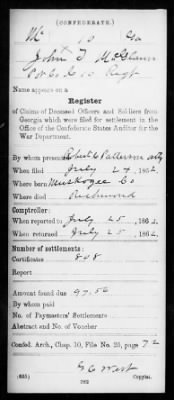 (CONFEDERATE.)
Mc 10 Ga
John T McGlaun
Co. G 10 Regt
Name appears on a
Register
of Claims of Deceased Officers and Soldiers from
Georgia which were filed for settlement in the
Office of the Confederate States Auditor for the
War Department.
By whom presented Robert C Patterson atty
When filed July 24, 1862
Where born Muskogee Co
Where died Richmond
Comptroller:
When reported to July 25, 1862
When returned July 25, 1862
Number of settlements:
Certificates 808
Report
Amount found due 97.50
By whom paid
No. of Paymasters' Settlements
Abstract and No. of Voucher
Confed. Arch., Chap. 10, File No. 25, page 72
G C West
(635) 262 Copyist.